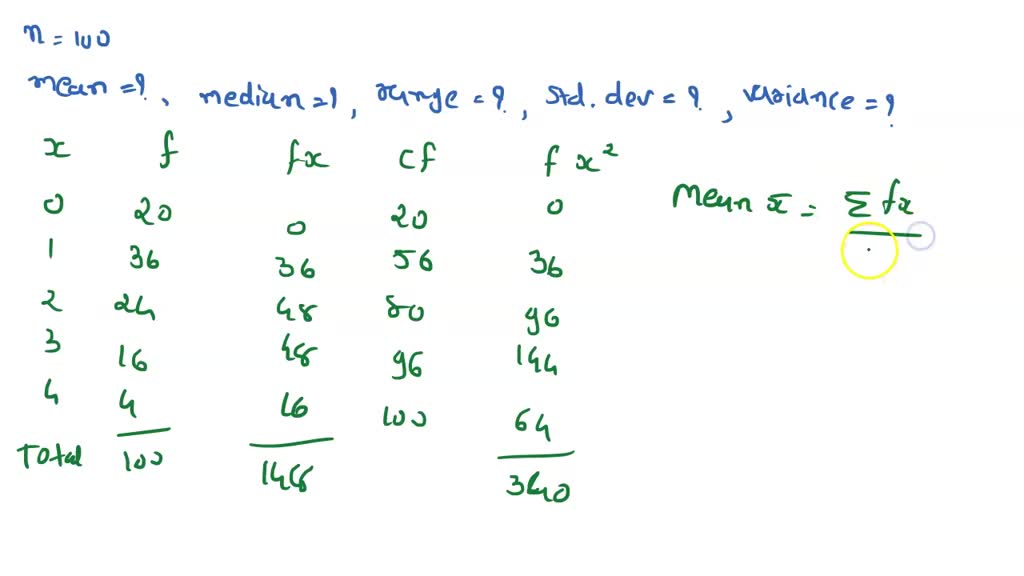 n = 100
mean = ?, median = ?, range = ?, std. dev = ?, variance = ?
x f fx cf f x²
0 20 0 20 0
1 36 36 56 36
2 24 48 80 96
3 16 48 96 144
4 4 16 100 64
Total 100 148 340
Mean x̄ = Σ fx